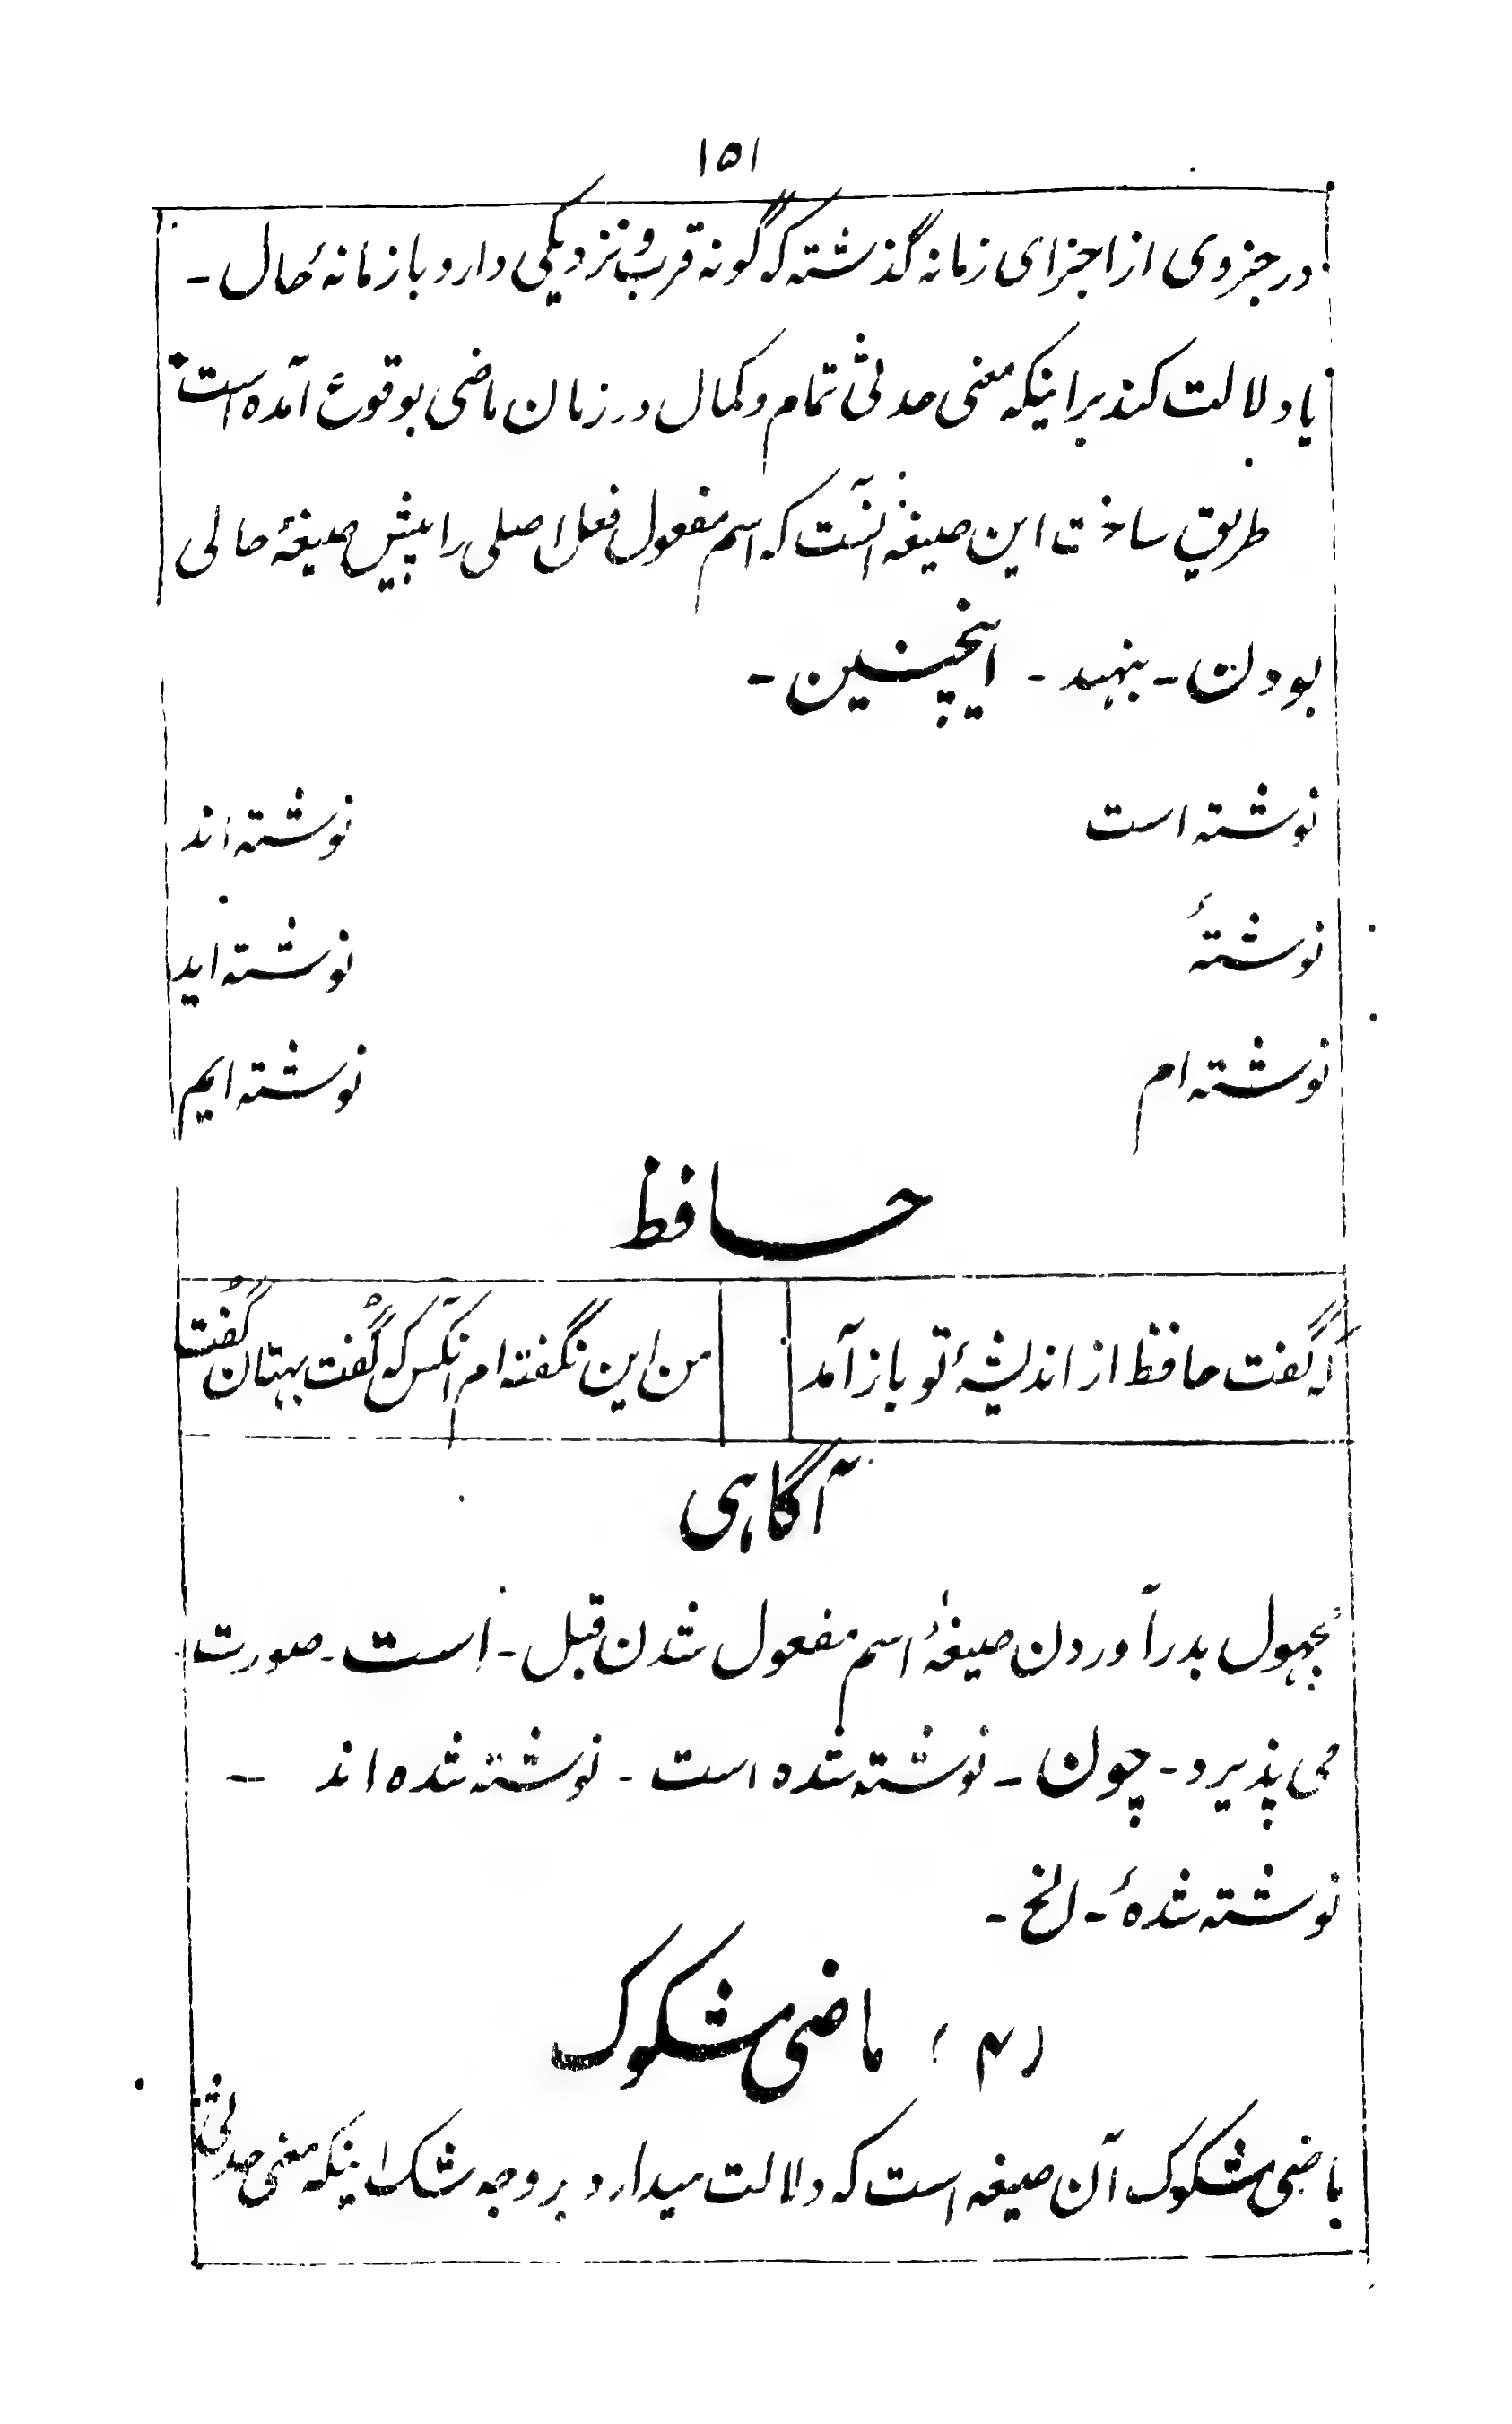 ۱۵۱
در جزوی از اجزای زمانه گذشته که گونه قرب و نزدیکی دارد با زمانهٔ حال -
یا دلالت کند بر اینکه معنی حدثی تمام و کمال در زمان ماضی بوقوع آمده است
طریق ساخت این صیغه آنست که اسم مفعول فعل اصلی را پیش صیغهٔ حالی
بودن - بنهید - اینچنین -
نوشته است نوشته اند
نوشتهٔ نوشته اید
نوشته ام نوشته ایم
حافظ
که گفت حافظ از اندیشهٔ تو باز آمد من این نگفته ام آنکس که گفت بهتان گفت
آگاهی
مجهول بدر آوردن صیغهٔ اسم مفعول شدن قبل - است - صورت
می پذیرد - چون - نوشته شده است - نوشته شده اند -
نوشته شدهٔ - الخ -
(۴) ماضی مشکوک
ماضی مشکوک آن صیغه است که دلالت میدارد بر وجه شک اینکه معنی حدثی